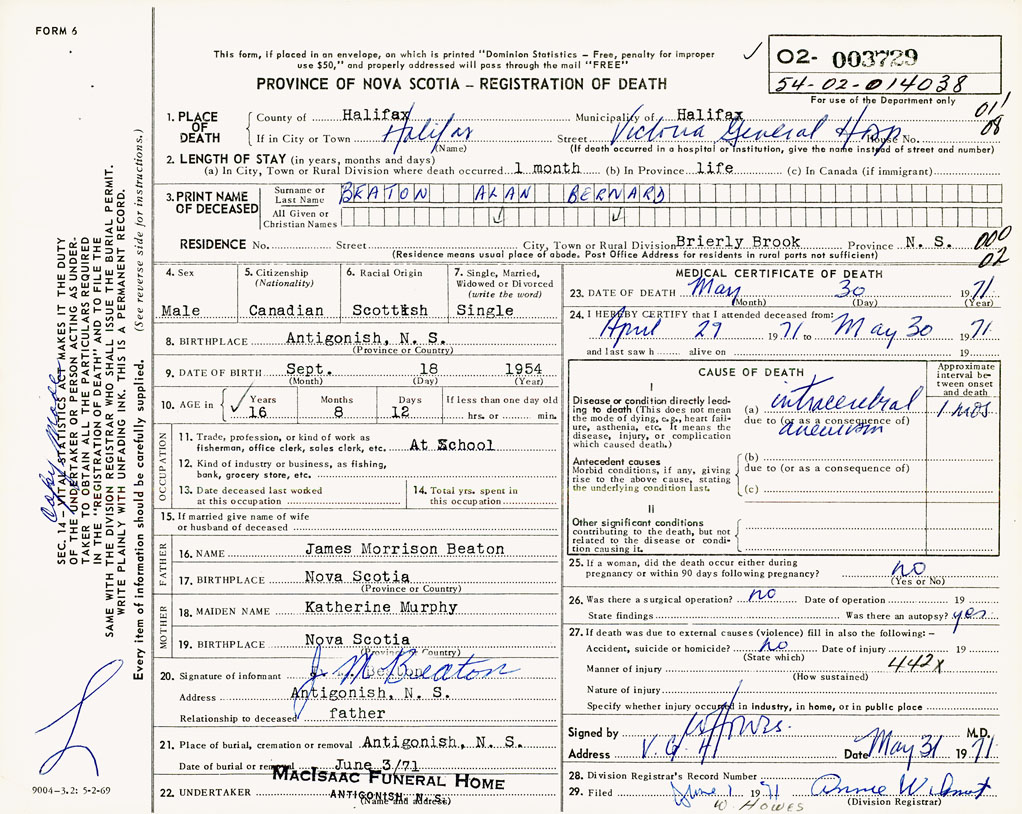 FORM 6
This form, if placed in an envelope, on which is printed "Dominion Statistics – Free, penalty for improper
use $50," and properly addressed will pass through the mail "FREE"
PROVINCE OF NOVA SCOTIA – REGISTRATION OF DEATH
02- 003729
54-02-014038
For use of the Department only
011
08
1. PLACE OF DEATH
County of Halifax Municipality of Halifax
If in City or Town Halifax Street Victoria General Hosp House No.
(Name) (If death occurred in a hospital or institution, give the name instead of street and number)
2. LENGTH OF STAY (in years, months and days)
(a) In City, Town or Rural Division where death occurred 1 month (b) In Province life (c) In Canada (if immigrant)
3. PRINT NAME OF DECEASED
Surname or Last Name BEATON ALAN BERNARD
All Given or Christian Names
RESIDENCE No. Street City, Town or Rural Division Brierly Brook Province N. S.
(Residence means usual place of abode. Post Office Address for residents in rural parts not sufficient)
000
02
4. Sex
Male
5. Citizenship
(Nationality)
Canadian
6. Racial Origin
Scottish
7. Single, Married,
Widowed or Divorced
(write the word)
Single
8. BIRTHPLACE Antigonish, N. S.
(Province or Country)
9. DATE OF BIRTH Sept. 18 1954
(Month) (Day) (Year)
10. AGE in
Years Months Days If less than one day old
16 8 12 hrs. or min.
OCCUPATION
11. Trade, profession, or kind of work as
fisherman, office clerk, sales clerk, etc. At School
12. Kind of industry or business, as fishing,
bank, grocery store, etc.
13. Date deceased last worked
at this occupation
14. Total yrs. spent in
this occupation
15. If married give name of wife
or husband of deceased
FATHER
16. NAME James Morrison Beaton
17. BIRTHPLACE Nova Scotia
(Province or Country)
MOTHER
18. MAIDEN NAME Katherine Murphy
19. BIRTHPLACE Nova Scotia
(Province or Country)
20. Signature of informant J M Beaton
Address Antigonish, N. S.
Relationship to deceased father
21. Place of burial, cremation or removal Antigonish, N. S.
Date of burial or removal June 3/71
22. UNDERTAKER MACISAAC FUNERAL HOME
ANTIGONISH, N. S.
(Name and address)
MEDICAL CERTIFICATE OF DEATH
23. DATE OF DEATH May 30 1971
(Month) (Day) (Year)
24. I HEREBY CERTIFY that I attended deceased from:
April 29 1971 to May 30 1971
and last saw h alive on 19
CAUSE OF DEATH
Approximate
interval be-
tween onset
and death
I
Disease or condition directly lead-
ing to death (This does not mean
the mode of dying, e.g., heart fail-
ure, asthenia, etc. It means the
disease, injury, or complication
which caused death.)
(a) intracerebral 1 mos
due to (or as a consequence of)
aneurism
Antecedent causes
Morbid conditions, if any, giving
rise to the above cause, stating
the underlying condition last.
(b)
due to (or as a consequence of)
(c)
II
Other significant conditions
contributing to the death, but not
related to the disease or condi-
tion causing it.
25. If a woman, did the death occur either during
pregnancy or within 90 days following pregnancy? no
(Yes or No)
26. Was there a surgical operation? no Date of operation 19
State findings Was there an autopsy? yes
27. If death was due to external causes (violence) fill in also the following: –
Accident, suicide or homicide? no Date of injury 19
(State which)
Manner of injury 442X
(How sustained)
Nature of injury
Specify whether injury occurred in industry, in home, or in public place
Signed by W Howes. M.D.
Address V. G. H Date May 31 1971
28. Division Registrar's Record Number
29. Filed June 1 1971
(Division Registrar)
W. HOWES
SEC. 14 – VITAL STATISTICS ACT MAKES IT THE DUTY
OF THE UNDERTAKER OR PERSON ACTING AS UNDER-
TAKER TO OBTAIN ALL THE PARTICULARS REQUIRED
IN THE "REGISTRATION OF DEATH" AND TO FILE THE
SAME WITH THE DIVISION REGISTRAR WHO SHALL ISSUE THE BURIAL PERMIT.
WRITE PLAINLY WITH UNFADING INK. THIS IS A PERMANENT RECORD.
Every item of information should be carefully supplied. (See reverse side for instructions.)
Copy Made
9004-3.2: 5-2-69